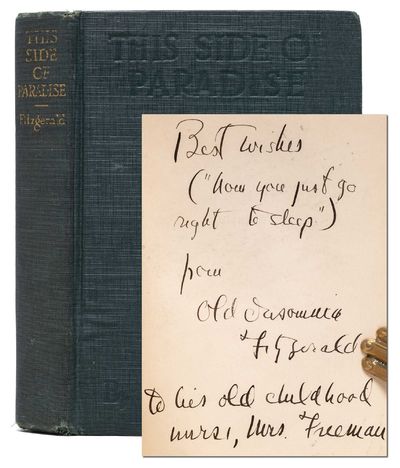 THIS
SIDE
OF
PARADISE
Fitzgerald
THIS SIDE OF
PARADISE
Best wishes
("Now you just go
right to sleep")
from
Old Insomnia
Fitzgerald
to his old childhood
nurse, Mrs. Freeman